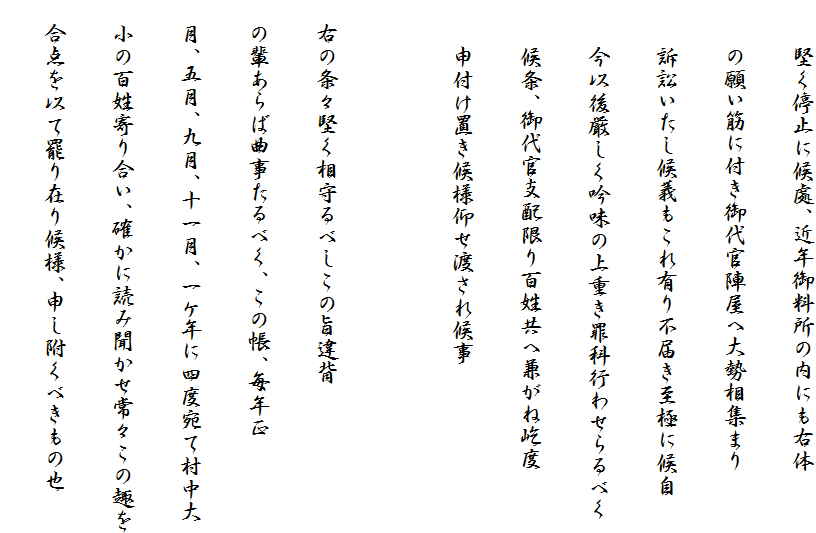 堅く停止に候處、近年御料所の内にも右体
の願い筋に付き御代官陣屋へ大勢相集まり
訴訟いたし候義もこれ有り不届き至極に候自
今以後厳しく吟味の上重き罪科行わせらるべく
候条、御代官支配限り百姓共へ兼がね屹度
申付け置き候様仰せ渡され候事
右の条々堅く相守るべしこの旨違背
の輩あらば曲事たるべく、この帳、毎年正
月、五月、九月、十一月、一ケ年に四度宛て村中大
小の百姓寄り合い、確かに読み聞かせ常々この趣を
合点を以て罷り在り候様、申し附くべきもの也